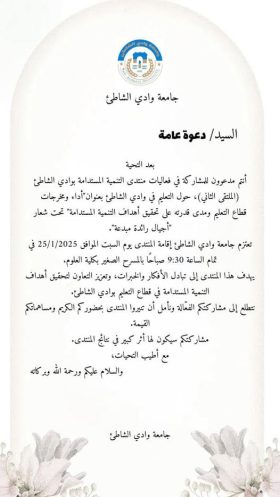 جامعة وادي الشاطئ
السيد/ دعوة عامة
بعد التحية
أنتم مدعوون للمشاركة في فعاليات منتدى التنمية المستدامة بوادي الشاطئ
(الملتقى الثاني)، حول التعليم في وادي الشاطئ بعنوان"أداء ومخرجات
قطاع التعليم ومدى قدرته على تحقيق أهداف التنمية المستدامة" تحت شعار
"أجيال رائدة مبدعة".
تعتزم جامعة وادي الشاطئ إقامة المنتدى يوم السبت الموافق 25/1/2025 في
تمام الساعة 9:30 صباحًا بالمسرح الصغير بكلية العلوم.
يهدف هذا المنتدى إلى تبادل الأفكار والخبرات، وتعزيز التعاون لتحقيق أهداف
التنمية المستدامة في قطاع التعليم بوادي الشاطئ.
نتطلع إلى مشاركتكم الفعّالة ونأمل أن تنيروا المنتدى بحضوركم الكريم ومساهماتكم
القيمة.
مشاركتكم سيكون لها أثر كبير في نتائج المنتدى.
مع أطيب التحيات،
والسلام عليكم ورحمة الله وبركاته
جامعة وادي الشاطئ